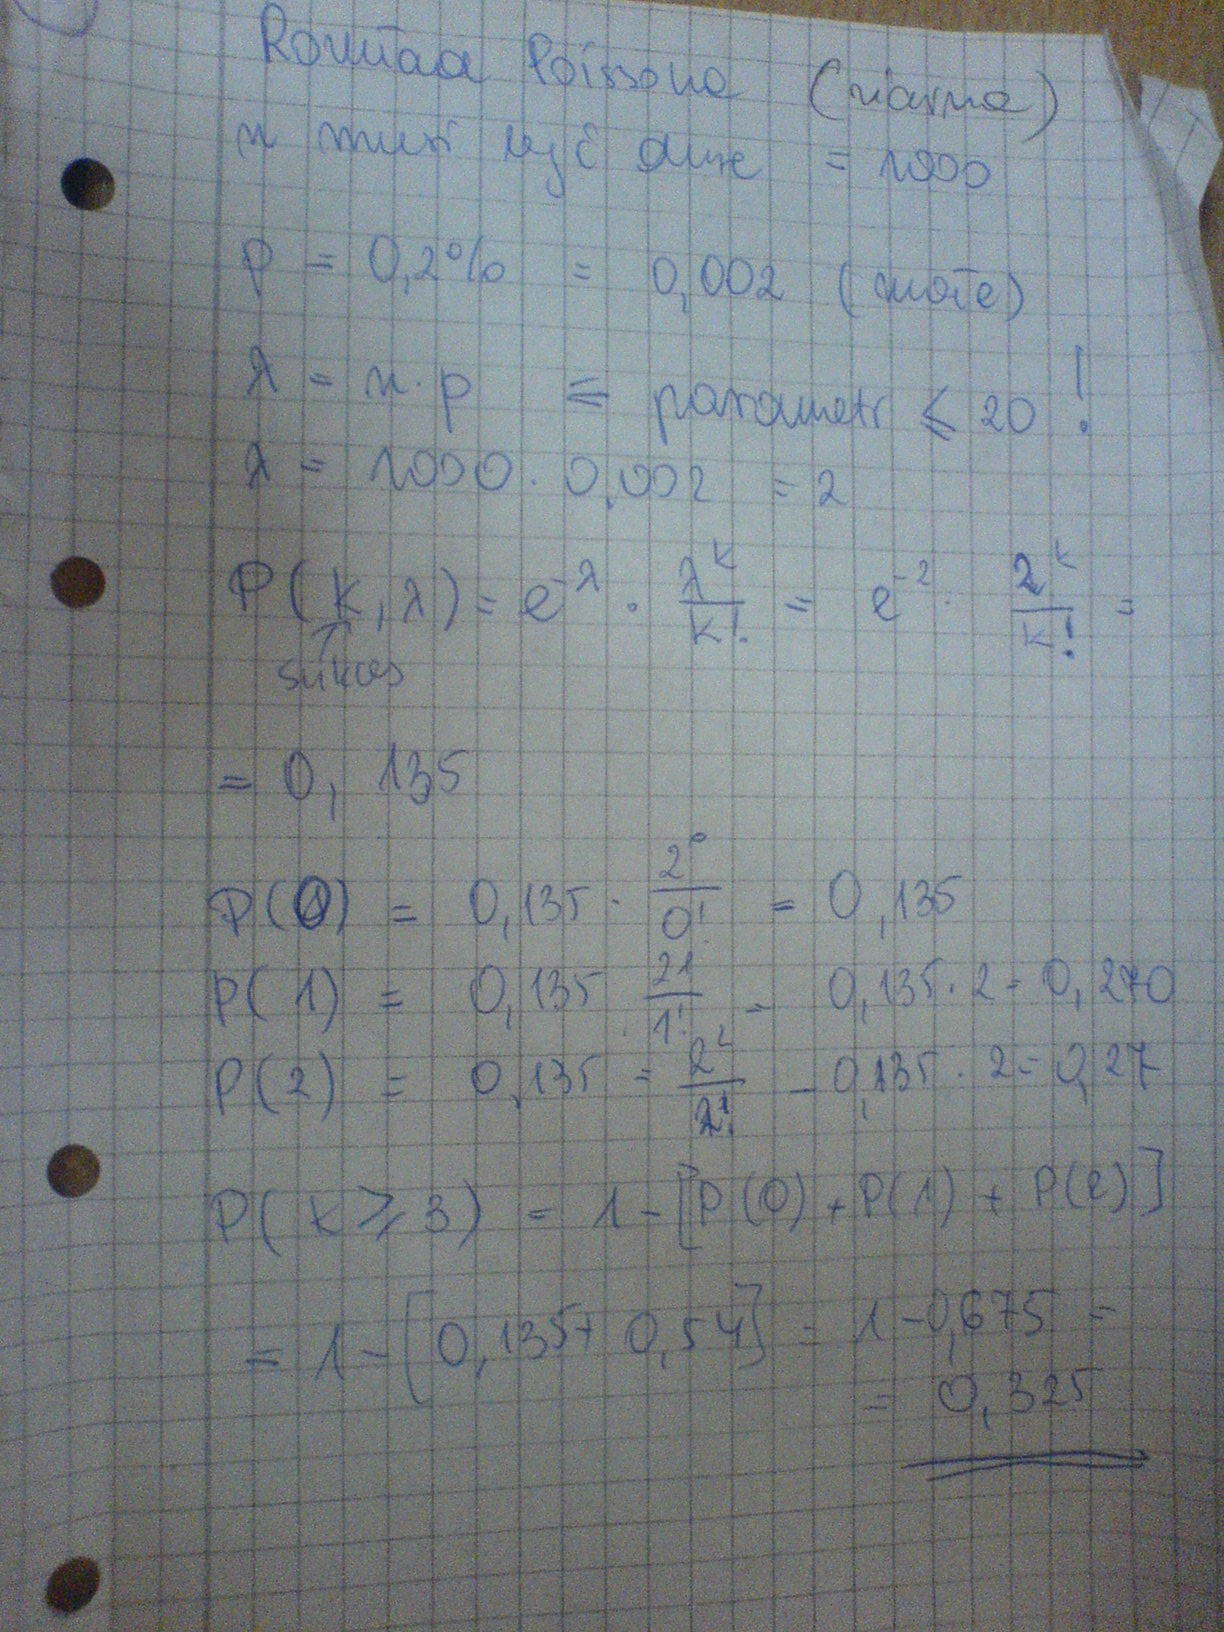 Rozkład Poissona (ziarna)
n musi być duże = 1000
p = 0,2% = 0,002 (małe)
λ = n · p ⇐ parametr ≤ 20 !
λ = 1000 · 0,002 = 2
P(k, λ) = e^-λ · λ^k/k! = e^-2 · 2^k/k! =
sukces
= 0, 135
P(0) = 0,135 · 2^0/0! = 0,135
P(1) = 0,135 · 2^1/1! = 0,135 · 2 = 0,270
P(2) = 0,135 = 2^2/2! = 0,135 · 2 = 0,27
P(k ≥ 3) = 1 - [P(0) + P(1) + P(2)]
= 1 - [0,135 + 0,54] = 1 - 0,675 =
= 0,325